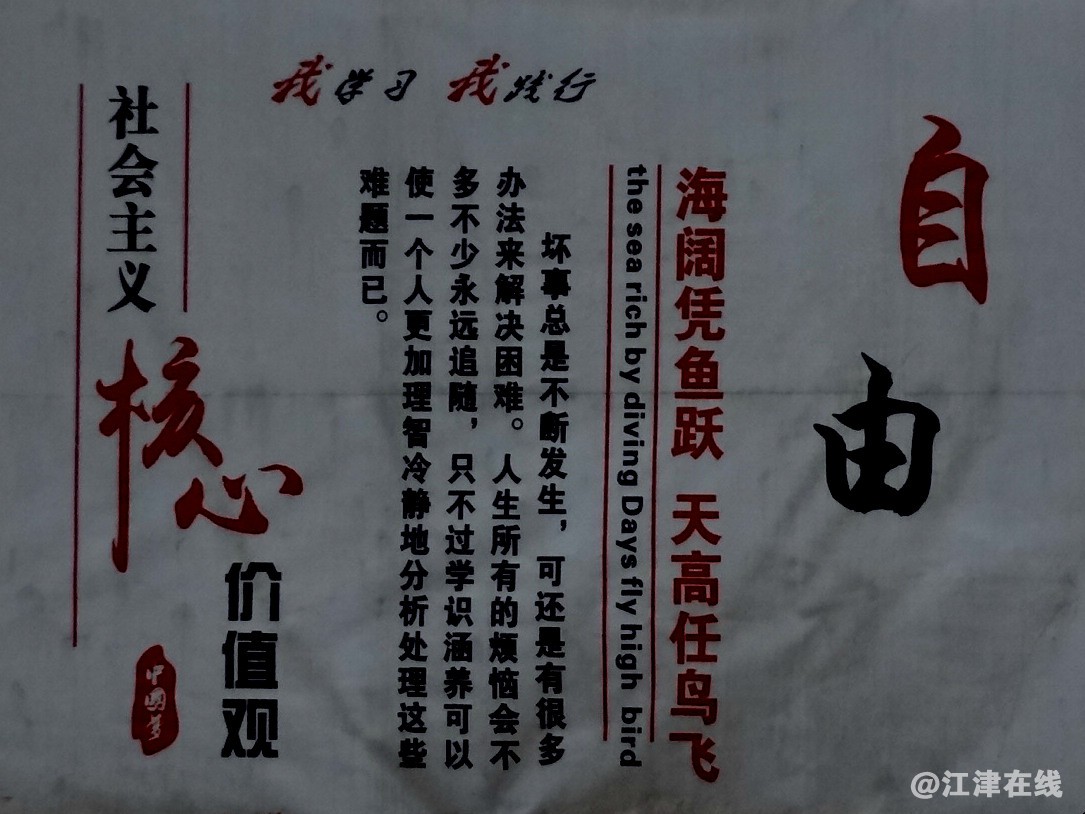 自由
海阔凭鱼跃 天高任鸟飞
the sea rich by diving Days fly high bird
坏事总是不断发生，可还是有很多
办法来解决困难。人生所有的烦恼会不
多不少永远追随，只不过学识涵养可以
使一个人更加理智冷静地分析处理这些
难题而已。
我学习 我践行
社会主义
核心
价值观
中国梦
@江津在线